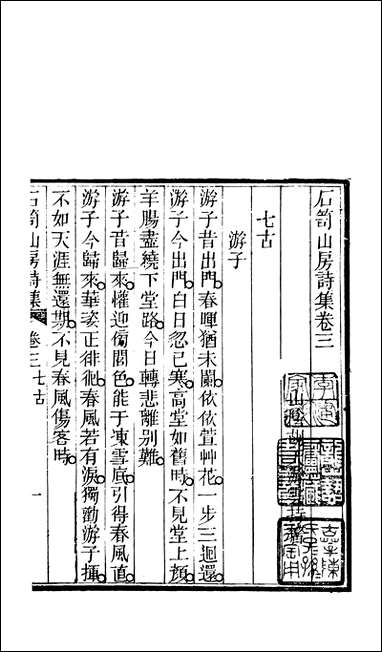 石笥山房詩集卷三
山陰胡天游稚威
七古
游子
游子昔出門春暉猶未闌依依萱艸花一步三迴還
游子今出門白日忽已寒高堂如舊時不見堂上顏
羊腸盡繞下堂路今日轉悲離别難
游子昔歸來懽迎僃閭色能于凍雪底引得春風直
游子今歸來華姿正徘徊春風若有淚獨勸游子攂
不如天涯無還期不見春風傷客時
石笥山房詩集
卷三七古
一